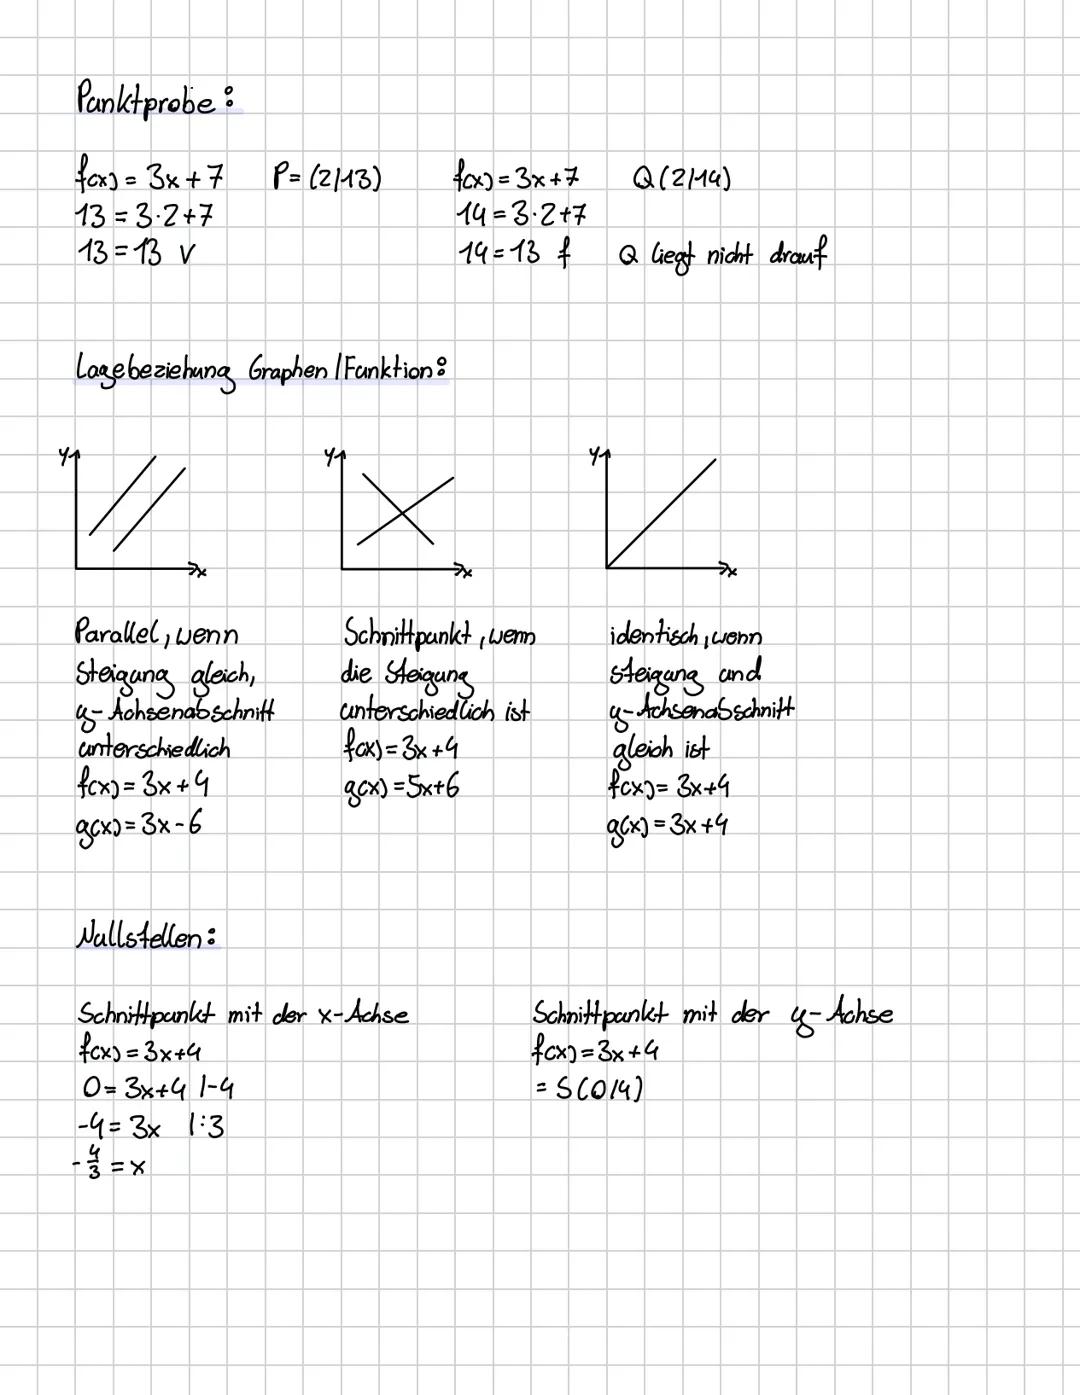 Punktprobe:
f(x) = 3x + 7 P = (2|13)
13 = 3·2+7
13 = 13 v
f(x) = 3x+7 Q(2|14)
14 = 3·2+7
14 = 13 f Q liegt nicht drauf
Lagebeziehung Graphen | Funktion:
y x
y x
y x
Parallel, wenn
Steigung gleich,
y-Achsenabschnitt
unterschiedlich
f(x) = 3x + 4
g(x) = 3x - 6
Schnittpunkt, wenn
die Steigung
unterschiedlich ist
f(x) = 3x + 4
g(x) = 5x+6
identisch, wenn
steigung und
y-Achsenabschnitt
gleich ist
f(x) = 3x+4
g(x) = 3x+4
Nullstellen:
Schnittpunkt mit der x-Achse
f(x) = 3x+4
0 = 3x+4 |-4
-4 = 3x |:3
-4/3 = x
Schnittpunkt mit der y-Achse
f(x) = 3x+4
= S(0|4)